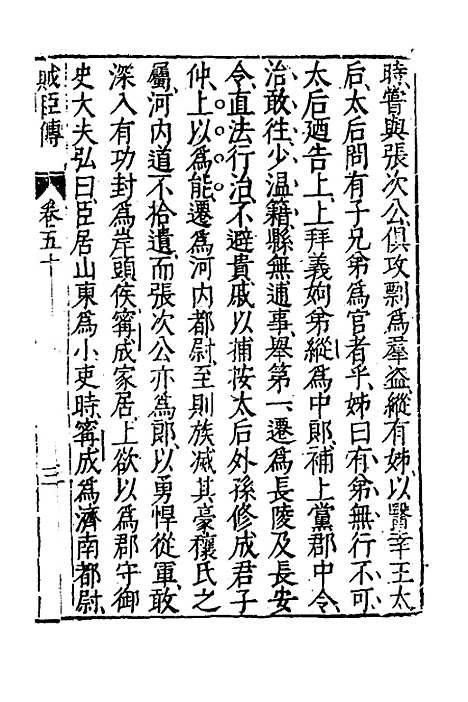 時甞與張次公俱攻剽爲羣盗縱有姊以醫幸王太
后太后問有子兄弟爲官者乎姊曰有弟無行不可
太后廼告上上拜義姁弟縱爲中郎補上黨郡中令
治敢往少溫籍縣無逋事舉第一遷爲長陵及長安
令直法行治不避貴戚以捕按太后外孫修成君子
仲上以爲能遷爲河内都尉至則族滅其豪穰氏之
屬河内道不拾遺而張次公亦爲郎以勇悍從軍敢
深入有功封爲岸頭侯寗成家居上欲以爲郡守御
史大夫弘曰臣居山東爲小吏時寗成爲濟南都尉
賊臣傳 卷五十 三